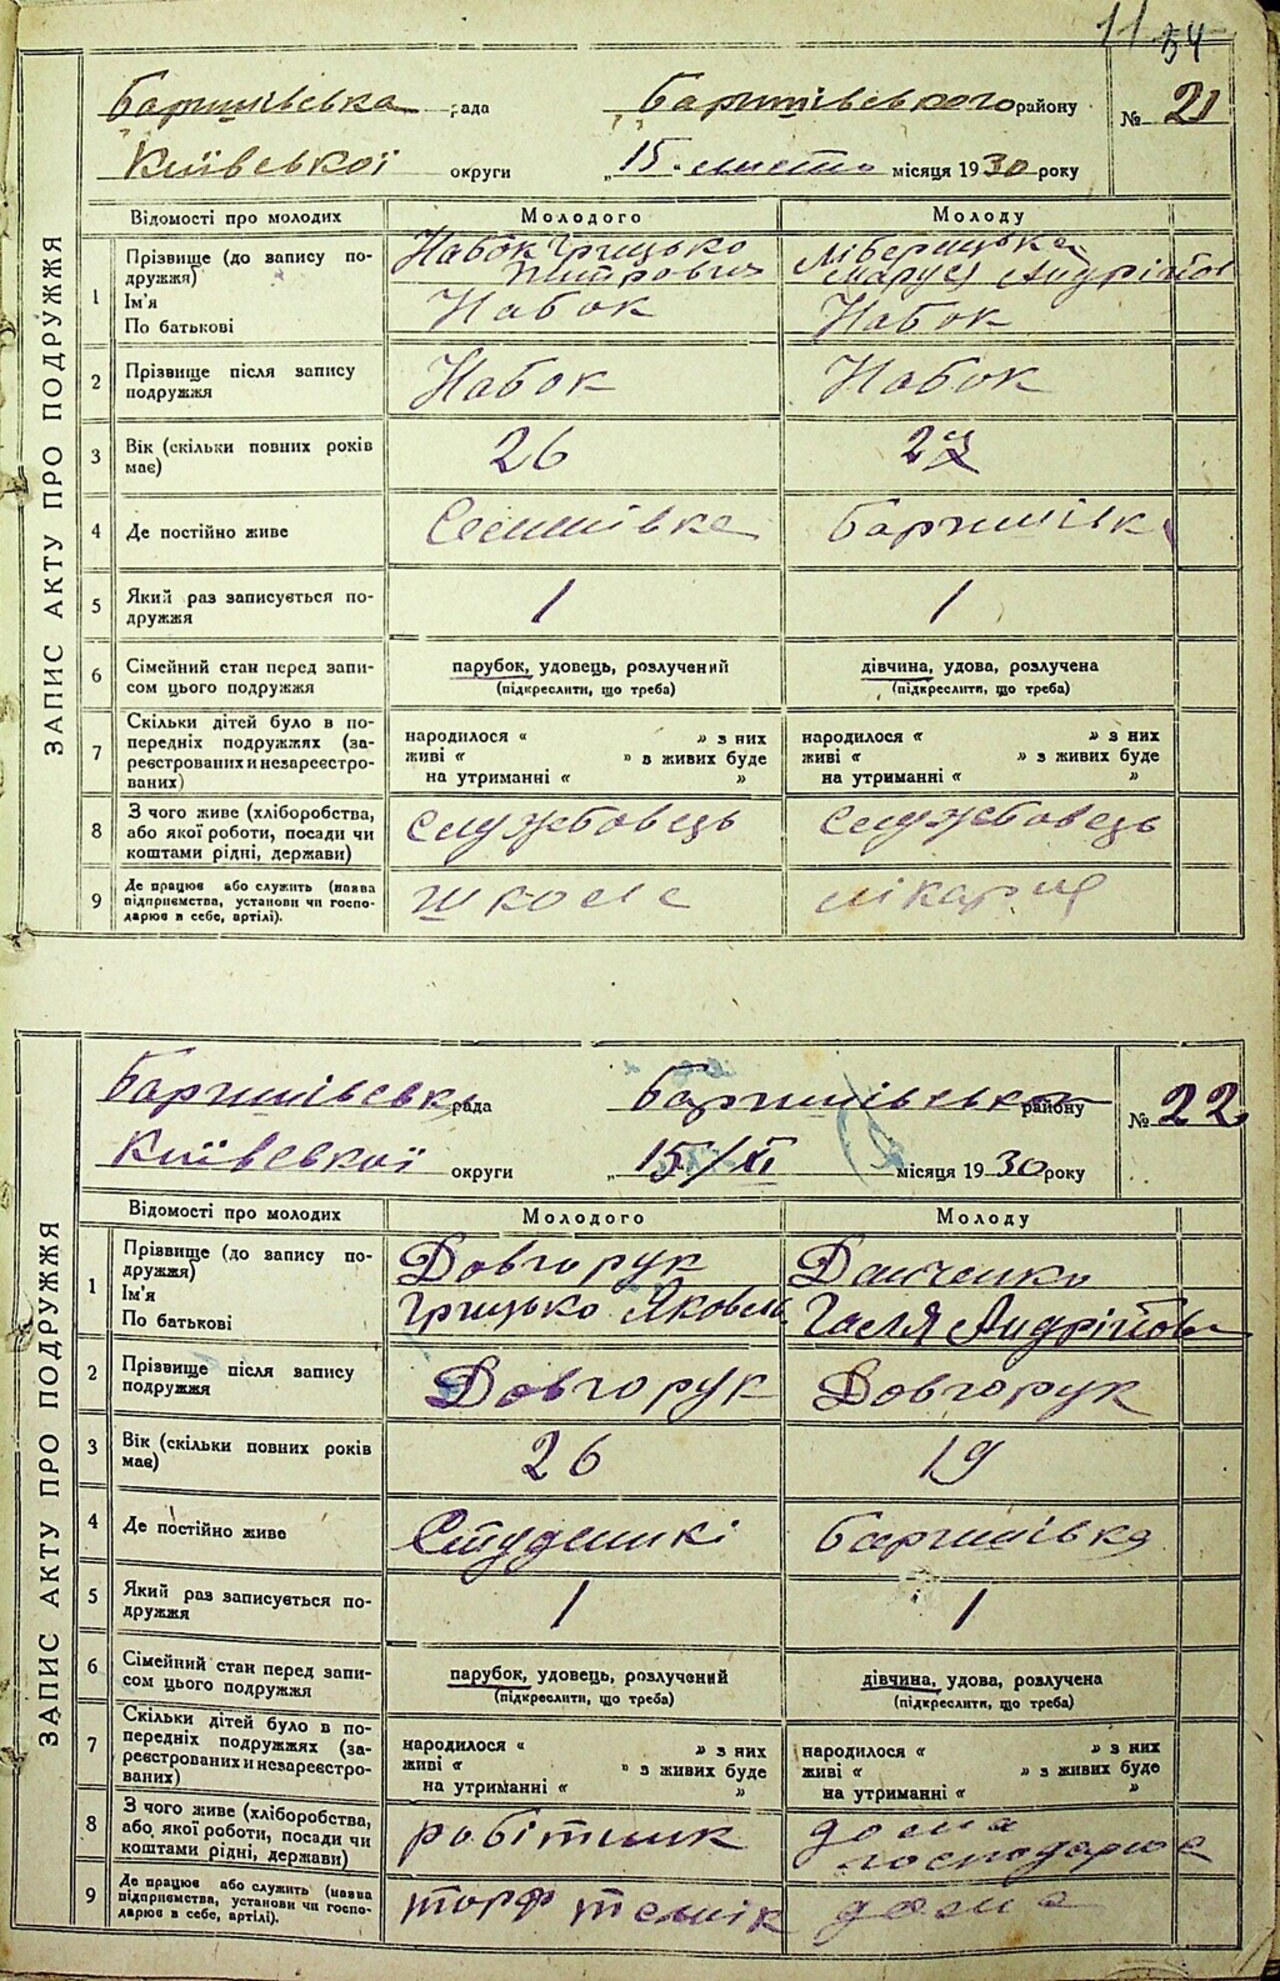 11 54
Баришівська рада Баришівського району № 21
Київської округи „15“ листо місяця 1930 року
ЗАПИС АКТУ ПРО ПОДРУЖЖЯ
Відомості про молодих Молодого Молоду
1 Прізвище (до запису по- Набок Грицько Ліберицька
дружжя) Дмитрович Маруся Андрійов
Ім'я Набок Набок
По батькові
2 Прізвище після запису Набок Набок
подружжя
3 Вік (скільки повних років 26
має)
4 Де постійно живе Баришівк
5 Який раз записується по- 1 1
дружжя
6 Сімейний стан перед запи- парубок, удовець, розлучений дівчина, удова, розлучена
сом цього подружжя (підкреслити, що треба) (підкреслити, що треба)
7 Скільки дітей було в по- народилося “ » з них народилося “ » з них
передніх подружжях (за- живі “ » в живих буде живі “ » з живих буде
реєстрованих и незареєстро- на утриманні “ » на утриманні “ »
ваних)
8 З чого живе (хліборобства, службовець службовець
або якої роботи, посади чи
коштами рідні, держави)
9 Де працює або служить (назва школа лікарня
підприємства, установи чи госпо-
дарює в себе, артілі).
Баришівськ рада Баришівськог району № 22
Київської округи „15/XI місяця 1930 року
ЗАПИС АКТУ ПРО ПОДРУЖЖЯ
Відомості про молодих Молодого Молоду
1 Прізвище (до запису по- Довгорук Данченко
дружжя)
Ім'я Грицько Яковль Галя Андрійовн
По батькові
2 Прізвище після запису Довгорук Довгорук
подружжя
3 Вік (скільки повних років 26 19
має)
4 Де постійно живе Студеникі Баришівка
5 Який раз записується по- 1 1
дружжя
6 Сімейний стан перед запи- парубок, удовець, розлучений дівчина, удова, розлучена
сом цього подружжя (підкреслити, що треба) (підкреслити, що треба)
7 Скільки дітей було в по- народилося “ » з них народилося “ » з них
передніх подружжях (за- живі “ » з живих буде живі “ » з живих буде
реєстрованих и незареєстро- на утриманні “ » на утриманні “ »
ваних)
8 З чого живе (хліборобства, робітник дома
або якої роботи, посади чи господарює
коштами рідні, держави)
9 Де працює або служить (назва торф технік дома
підприємства, установи чи госпо-
дарює в себе, артілі).